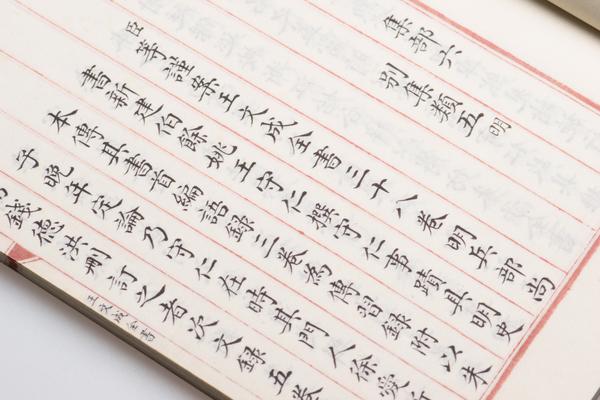 集部六
别集類五明
臣等謹案王文成全書三十八卷明兵部尚
書新建伯餘姚王守仁撰守仁事蹟具明史
本傳其書首編語録三卷為傳習録附以朱
子晚年定論乃守仁在時其門人徐愛
錢德洪刪訂之者次文録五卷
王文成全書